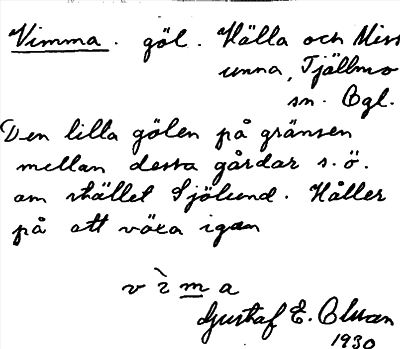 Vimma. göl. Hälla och Miss
unna, Tjällmo
sn. Ögl.
Den lilla gölen på gränsen
mellan dessa gårdar s.ö.
om stället Sjölund. Håller
på att växa igen
v ì m a
Gustaf E. Olsson
1930